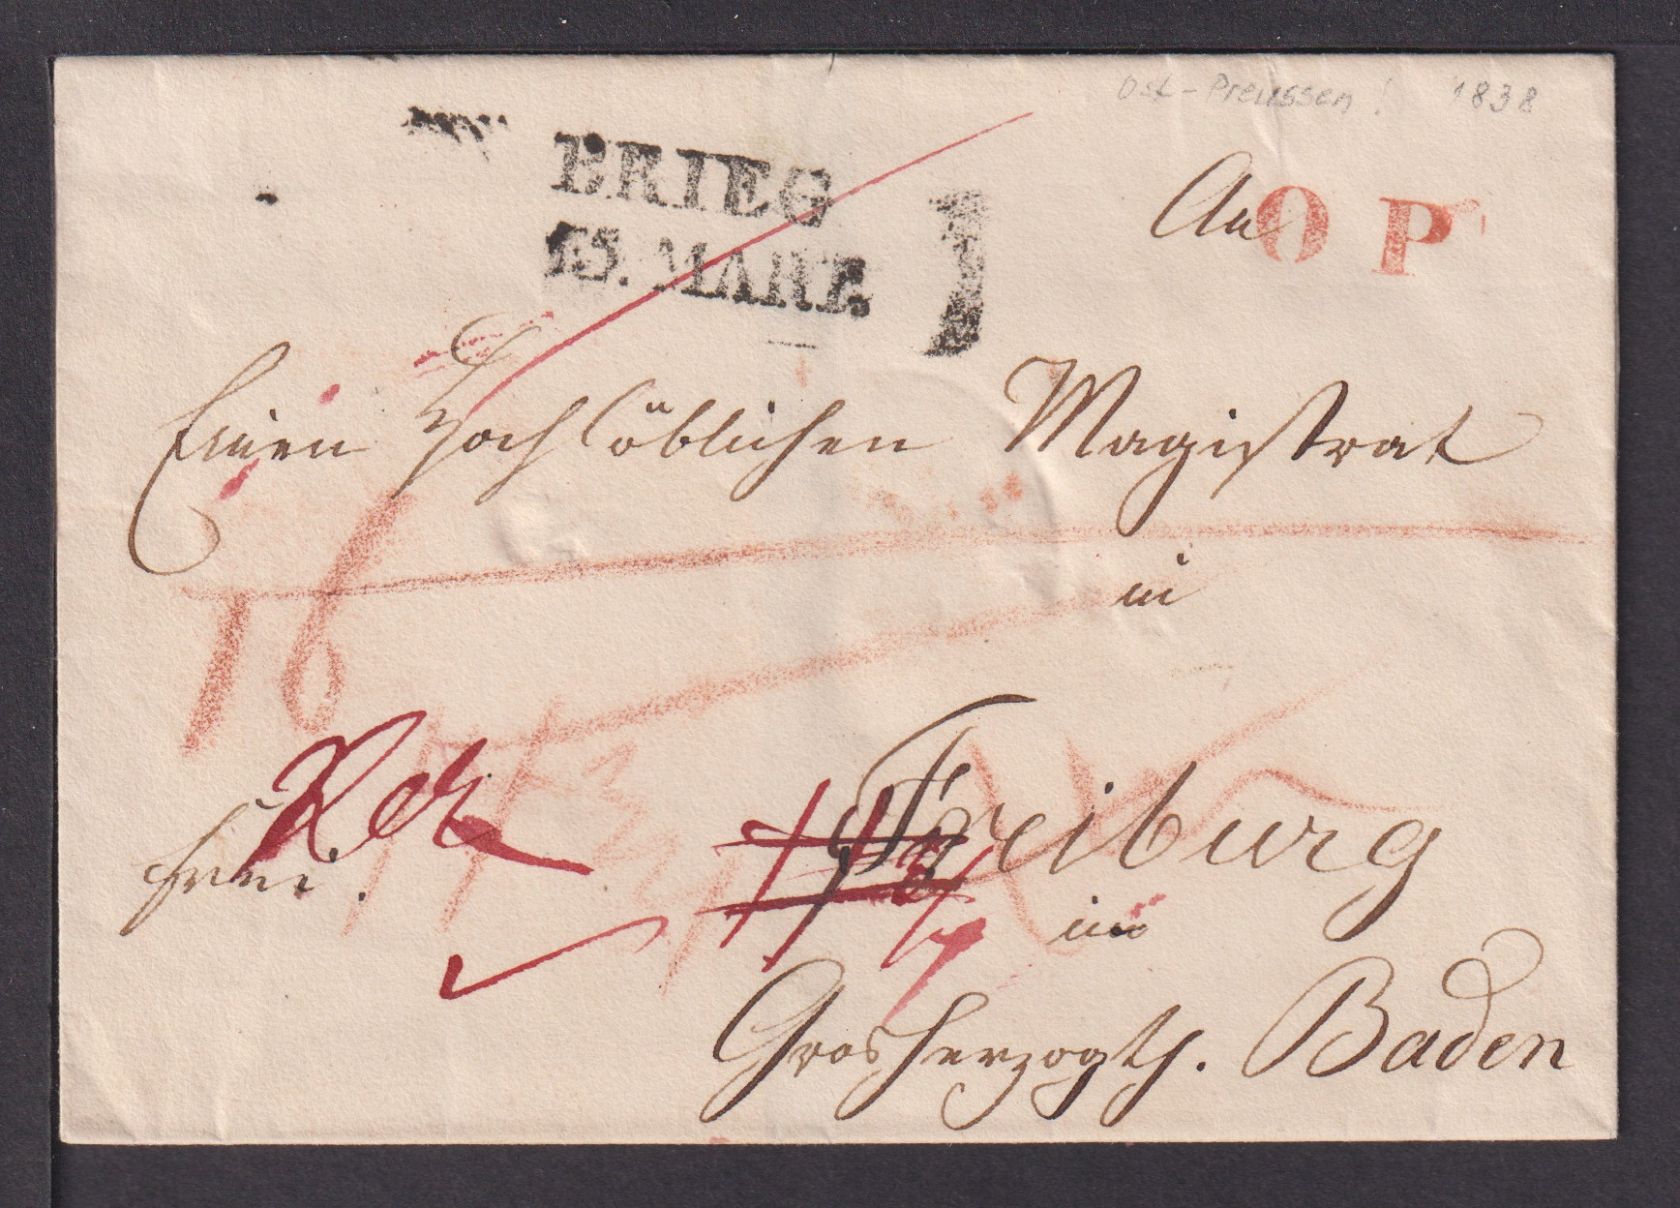 Ost-Preussen! 1838
BRIEG
15. MÄRZ.
An
O P
Einen Hochlöblichen Magistrat
in
16
Freiburg
frei.
im
Grosherzogth. Baden